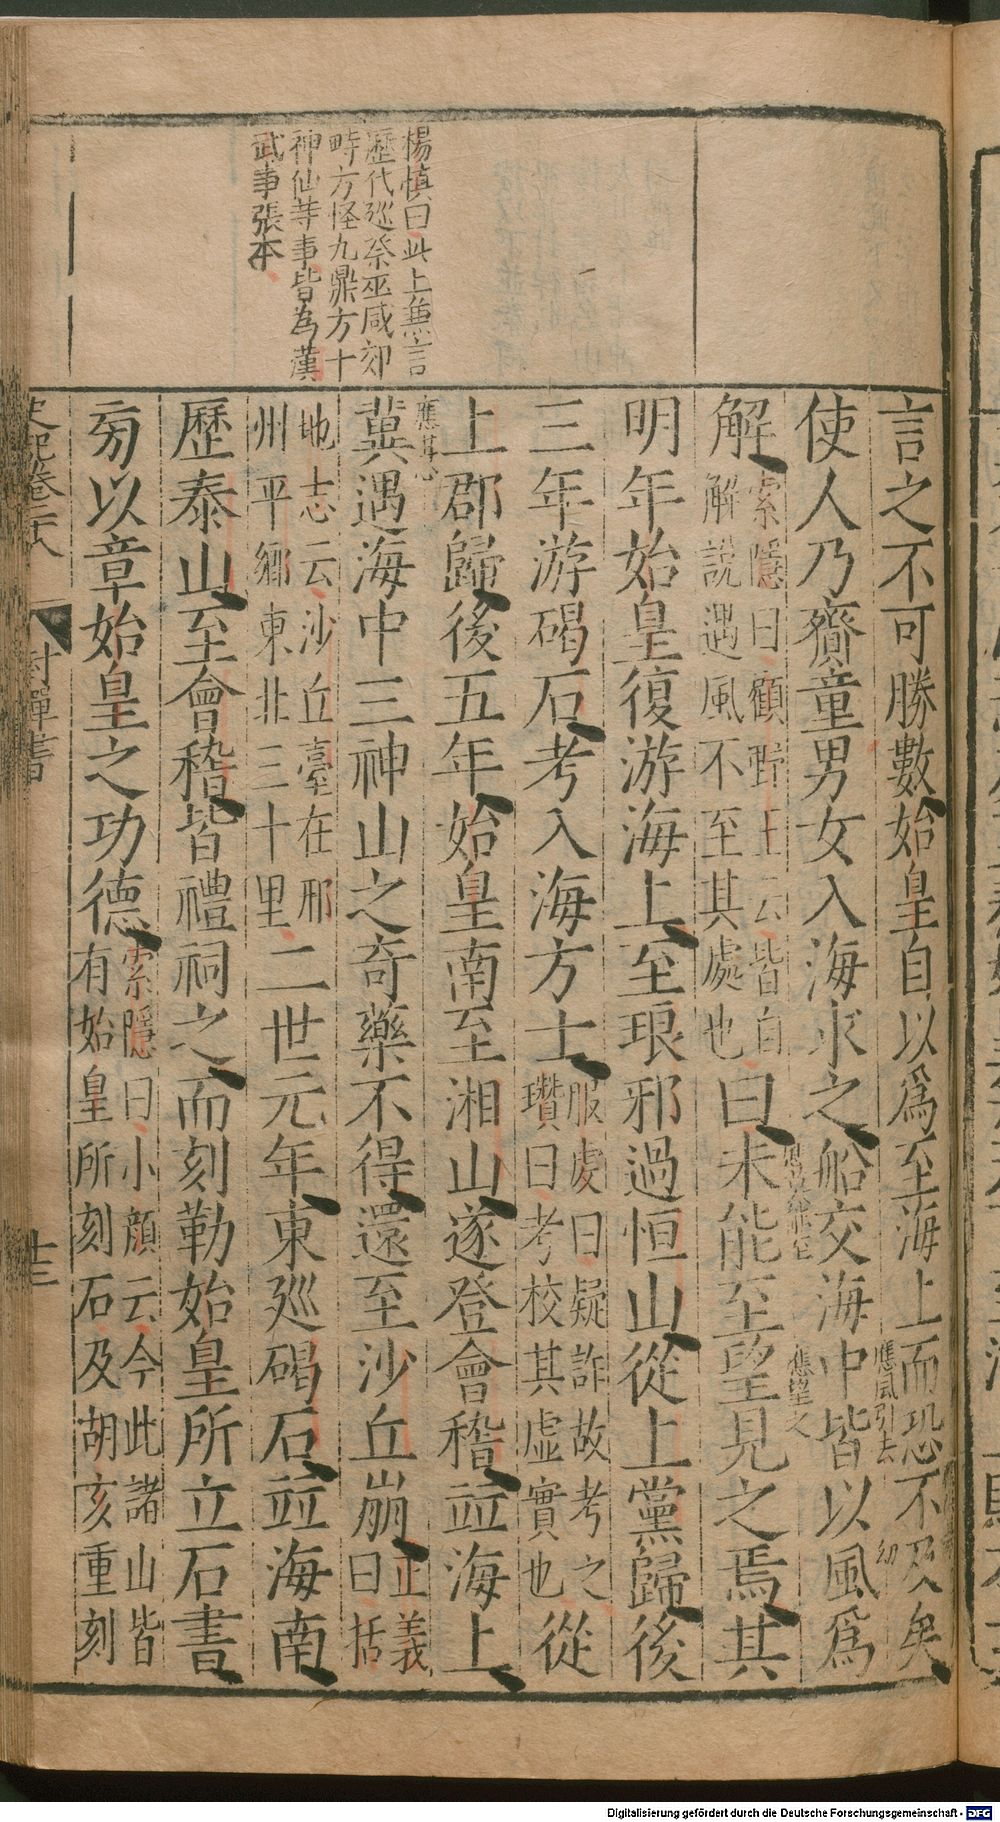 楊慎曰此上兼言
歷代廵祭巫咸郊
畤方怪九鼎方十
神仙等事皆為漢
武事張本
言之不可勝數始皇自以爲至海上而恐不及矣
應風引去
使人乃齎童男女入海求之船交海中皆以風爲
應望之
解索隱曰顧野王云皆自
解說遇風不至其處也曰未能至望見之焉其
明年始皇復游海上至琅邪過恒山從上黨歸後
三年游碣石考入海方士服虔曰疑詐故考之
瓚曰考校其虛實也從
上郡歸後五年始皇南至湘山遂登會稽竝海上
冀遇海中三神山之奇藥不得還至沙丘崩正義
曰括
地志云沙丘臺在邢
州平鄉東北三十里二世元年東廵碣石竝海南
歷泰山至會稽皆禮祠之而刻勒始皇所立石書
旁以章始皇之功德索隱曰小顔云今此諸山皆
有始皇所刻石及胡亥重刻
史記卷二十八
封禪書
十三
Digitalisierung gefördert durch die Deutsche Forschungsgemeinschaft - DFG